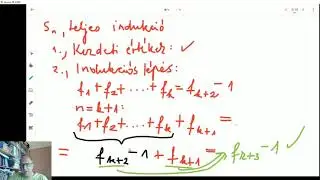 5., teljes indukció
1., Kezdeti értékek: ✓
2., Indukciós lépés:
f₁+f₂+....+fₖ=fₖ₊₂-1
n=k+1:
f₁+f₂+....+fₖ+fₖ₊₁=
= fₖ₊₂-1+fₖ₊₁=fₖ₊₃-1 ✓